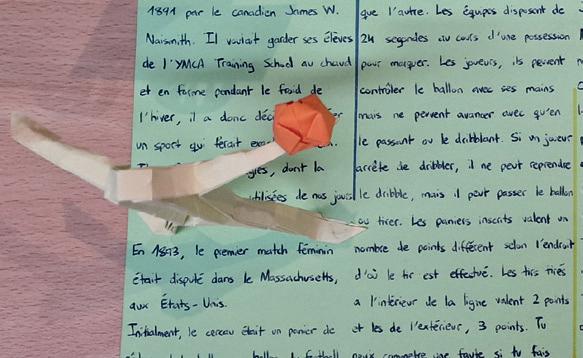 1891 par le canadien James W.
Naismith. Il voulait garder ses élèves
de l'YMCA Training School au chaud
et en forme pendant le froid de
l'hiver, il a donc
un sport qui ferait
dont la
utilisées de nos jours
En 1893, le premier match féminin
était disputé dans le Massachusetts,
aux États-Unis.
Initialement, le cerceau était un panier de
que l'autre. Les équipes disposent de
24 segondes au cours d'une possession
pour marquer. Les joueurs, ils peuvent
contrôler le ballon avec ses mains
mais ne pervent avancer avec qu'en
le passant ou le dribblant. Si un joueur
arrête de dribbler, il ne peut reprendre
le dribble, mais il peut passer le ballon
ou tirer. Les paniers inscrits valent un
nombre de points différent selon l'endroit
d'où le tir est effectué. Les tirs tirés
a l'intérieur de la ligne valent 2 points
et les de l'extérieur, 3 points. Tu
peux commettre une faute si tu fais